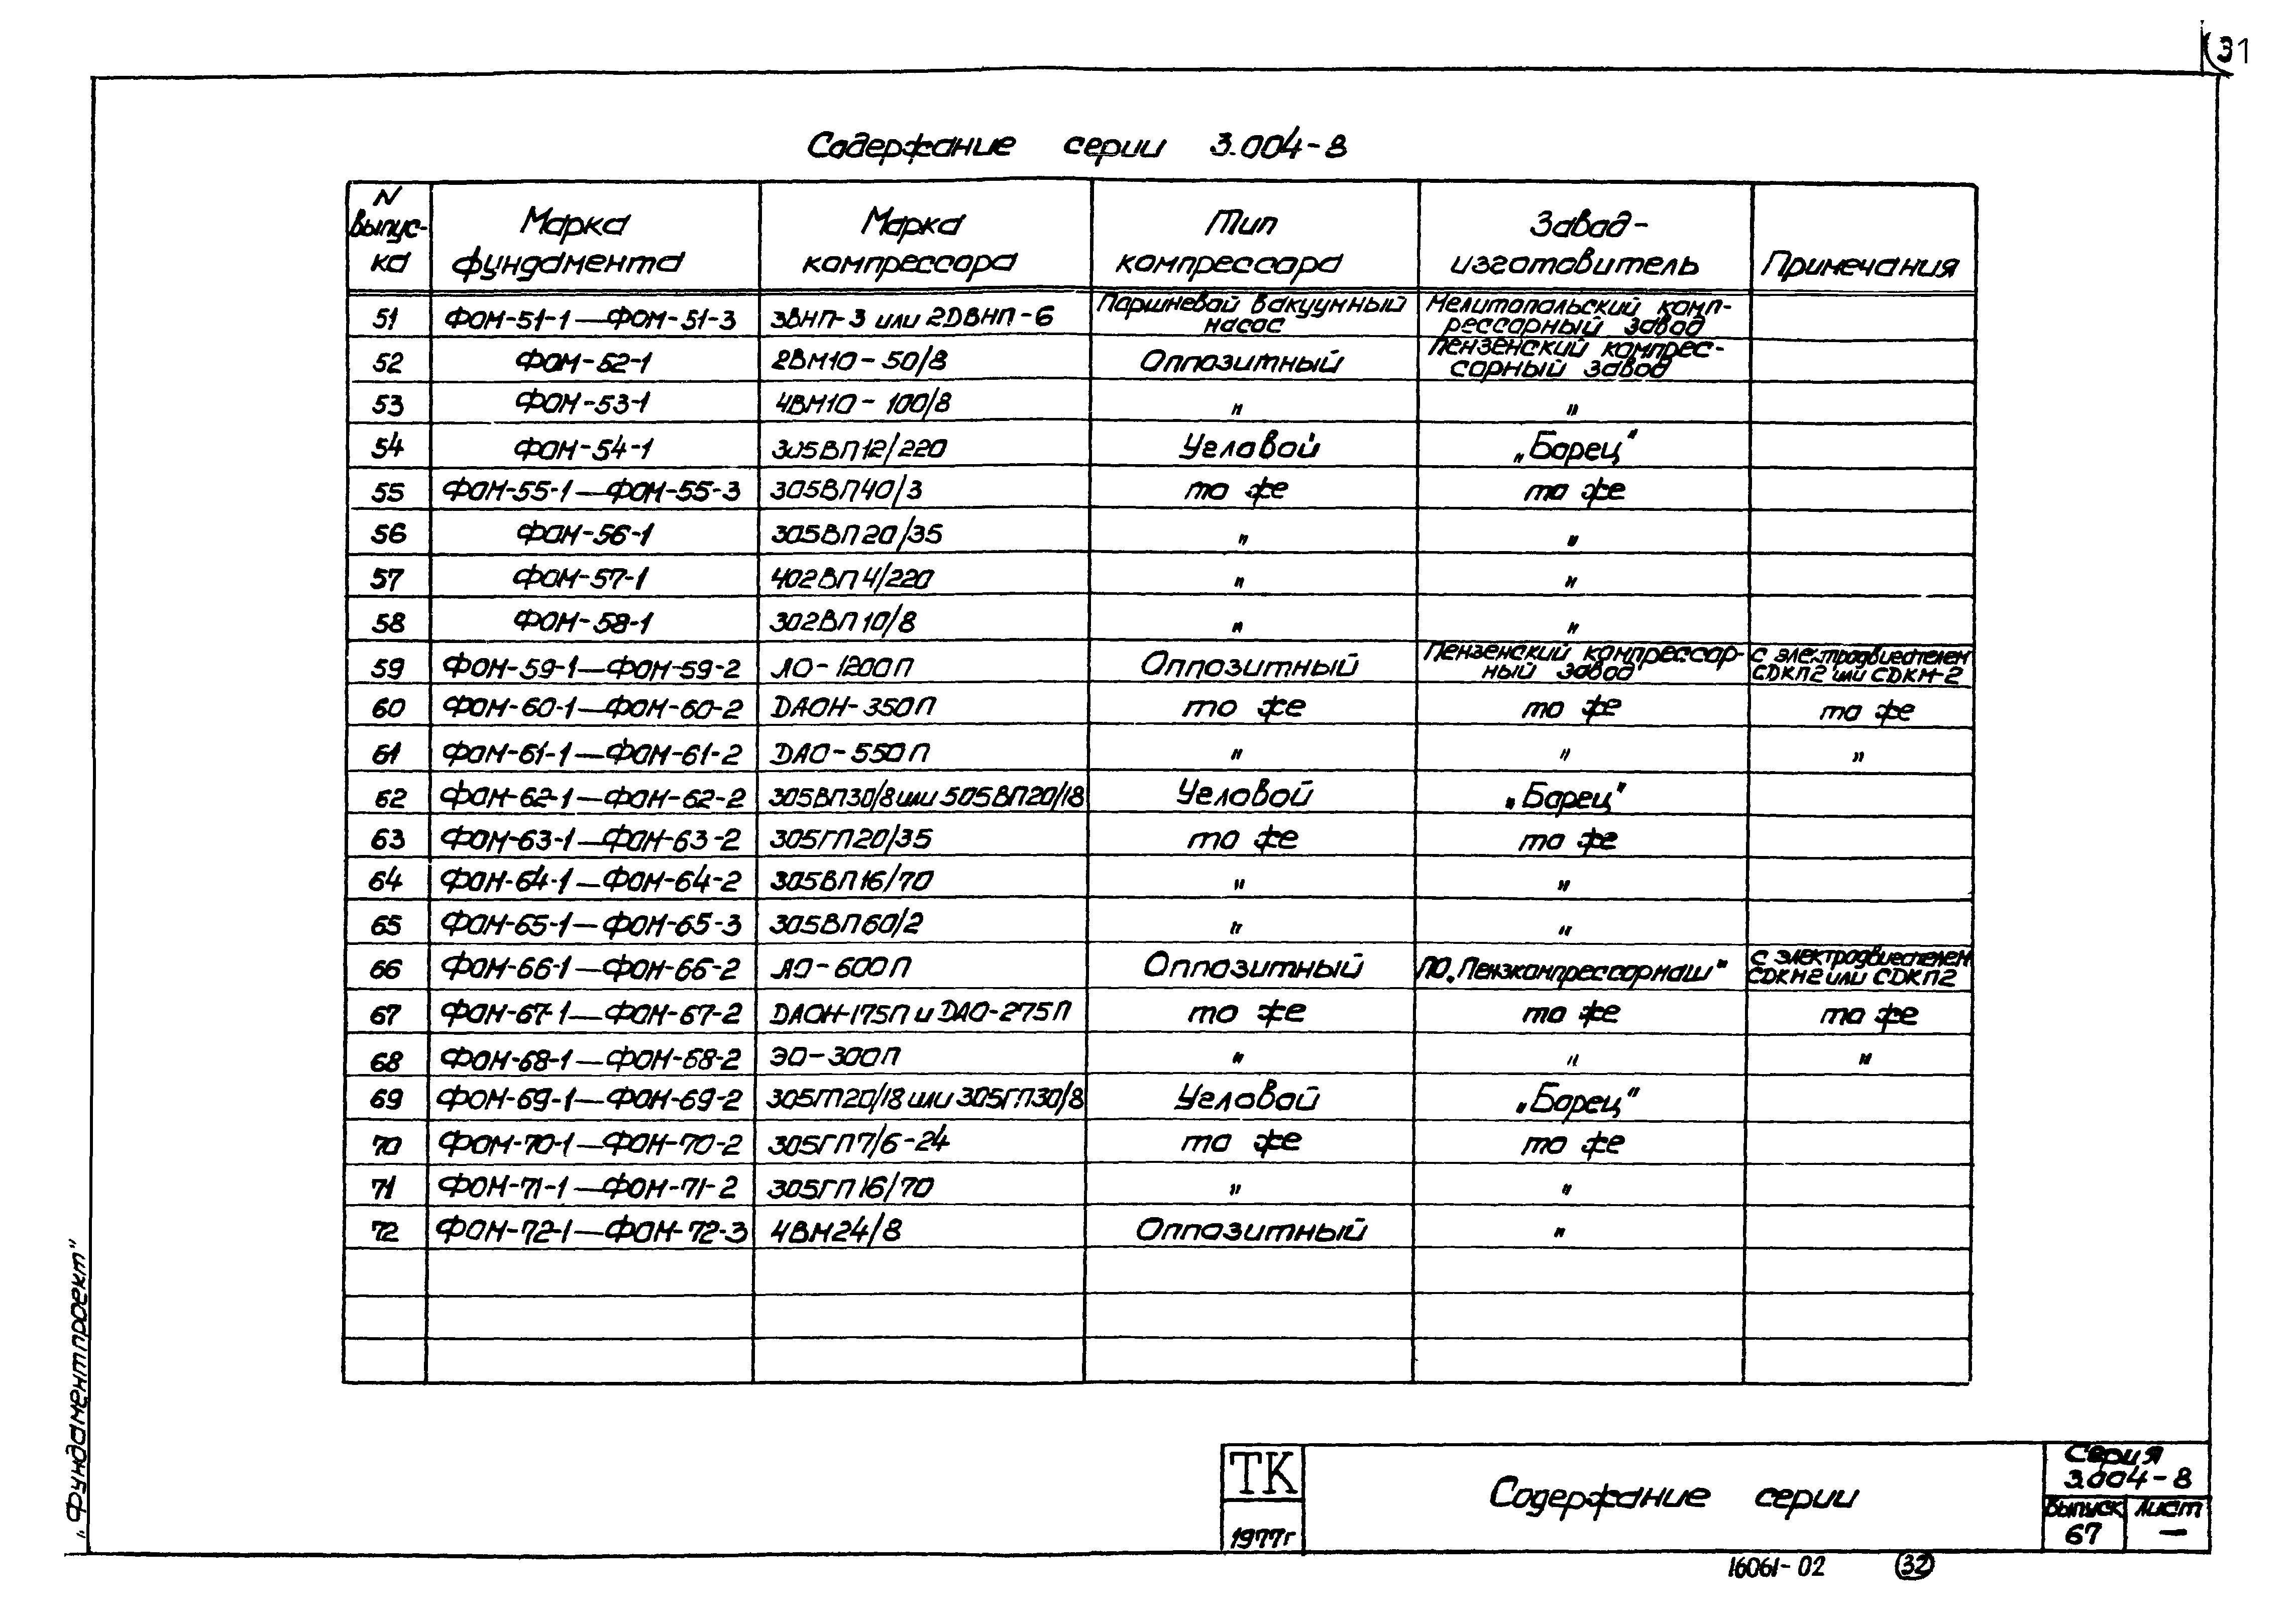 31
Содержание серии 3.004-8
N выпус-ка | Марка фундамента | Марка компрессора | Тип компрессора | Завод-изготовитель | Примечания
51 | ФОМ-51-1—ФОМ-51-3 | 3ВНП-3 или 2ДВНП-6 | Поршневой вакуумный насос | Мелитопольский комп-рессорный завод
52 | ФОМ-52-1 | 2ВМ10-50/8 | Оппозитный | Пензенский компрес-сорный завод
53 | ФОМ-53-1 | 4ВМ10-100/8 | " | "
54 | ФОМ-54-1 | 305ВП12/220 | Угловой | „Борец"
55 | ФОМ-55-1—ФОМ-55-3 | 305ВП40/3 | то же | то же
56 | ФОМ-56-1 | 305ВП20/35 | " | "
57 | ФОМ-57-1 | 402ВП4/220 | " | "
58 | ФОМ-58-1 | 302ВП10/8 | " | "
59 | ФОМ-59-1—ФОМ-59-2 | АО-1200П | Оппозитный | Пензенский компрессор-ный завод | с электродвигателем СДКП2 или СДКМ-2
60 | ФОМ-60-1—ФОМ-60-2 | ДАОН-350П | то же | то же | то же
61 | ФОМ-61-1—ФОМ-61-2 | ДАО-550П | " | " | "
62 | ФОМ-62-1—ФОМ-62-2 | 305ВП30/8 или 505ВП20/18 | Угловой | „Борец"
63 | ФОМ-63-1—ФОМ-63-2 | 305ГП20/35 | то же | то же
64 | ФОМ-64-1—ФОМ-64-2 | 305ВП16/70 | " | "
65 | ФОМ-65-1—ФОМ-65-3 | 305ВП60/2 | " | "
66 | ФОМ-66-1—ФОМ-66-2 | АО-600П | Оппозитный | ПО„Пензкомпрессормаш" | с электродвигателем СДКМ2 или СДКП2
67 | ФОМ-67-1—ФОМ-67-2 | ДАОН-175П и ДАО-275П | то же | то же | то же
68 | ФОМ-68-1—ФОМ-68-2 | ЭО-300П | " | " | "
69 | ФОМ-69-1—ФОМ-69-2 | 305ГП20/18 или 305ГП30/8 | Угловой | „Борец"
70 | ФОМ-70-1—ФОМ-70-2 | 305ГП7/6-24 | то же | то же
71 | ФОМ-71-1—ФОМ-71-2 | 305ГП16/70 | " | "
72 | ФОМ-72-1—ФОМ-72-3 | 4ВМ24/8 | Оппозитный | "
„Фундаментпроект"
ТК
1977г
Содержание серии
Серия
3.004-8
Выпуск Лист
67 —
16061-02 32